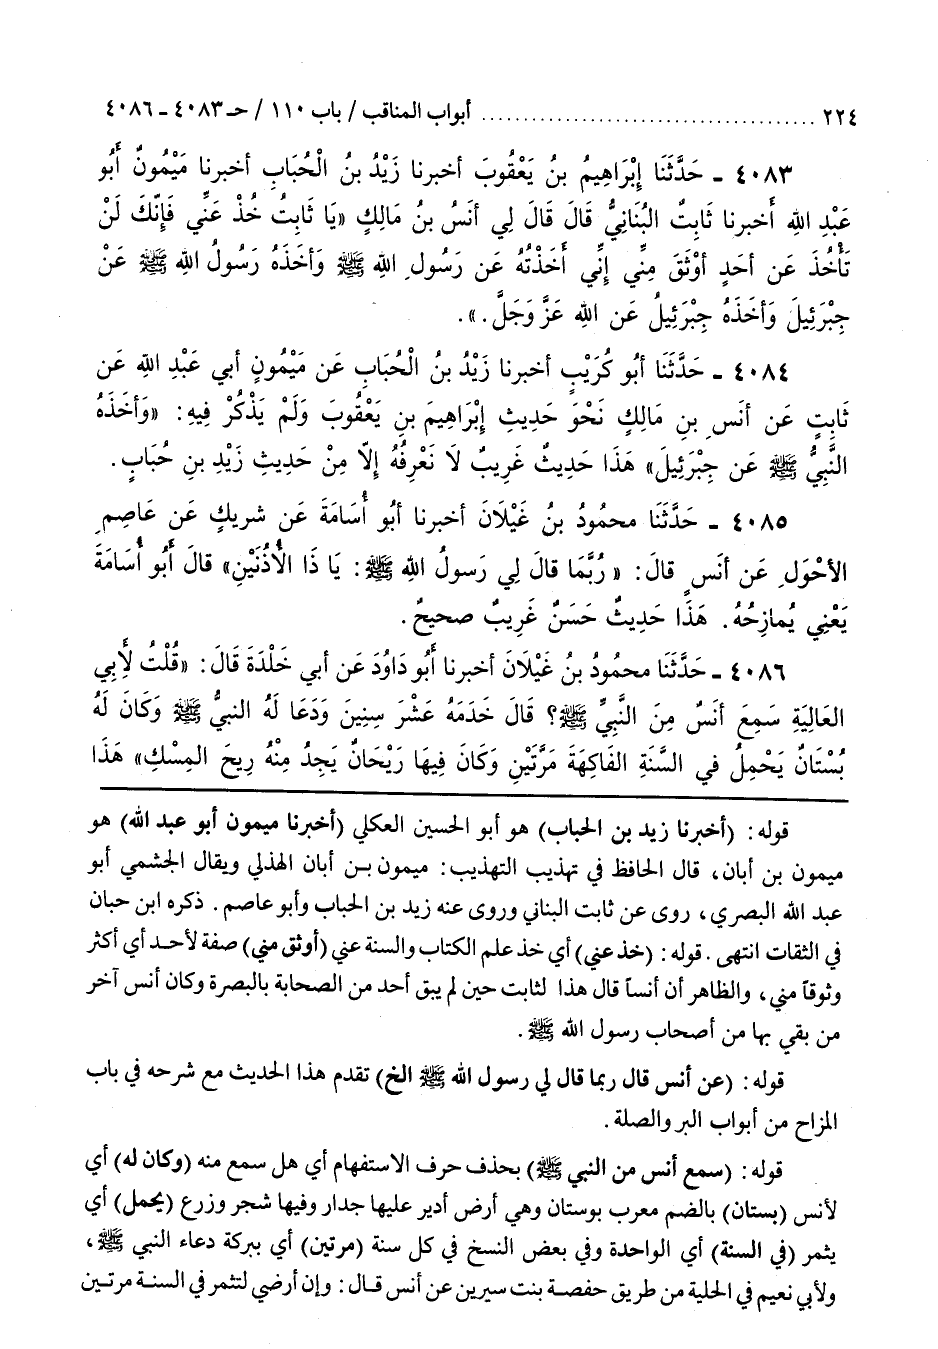 ٢٢٤ ........................................ أبواب المناقب / باب ١١٠ / حـ ٤٠٨٣ ـ ٤٠٨٦
٤٠٨٣ ـ حَدَّثَنَا إِبْرَاهِيمُ بنُ يَعْقُوبَ أخبرنا زَيْدُ بنُ الْحُبَابِ أخبرنا مَيْمُونٌ أَبُو
عَبْدِ اللهِ أَخبرنا ثَابِتٌ البُنَانِيُّ قَالَ قَالَ لِي أَنَسُ بنُ مَالِكٍ «يَا ثَابِتُ خُذْ عَنِّي فَإِنَّكَ لَنْ
تَأْخُذَ عَن أحَدٍ أوْثَقَ مِنِّي إِنِّي أَخَذْتُهُ عَن رَسُولِ اللهِ ﷺ وَأخَذَهُ رَسُولُ اللهِ ﷺ عَنْ
جِبْرَئِيلَ وَأخَذَهُ جِبْرَئِيلُ عَن اللهِ عَزَّ وَجَلَّ.».
٤٠٨٤ ـ حَدَّثَنَا أبُو كُرَيْبٍ أخبرنا زَيْدُ بنُ الْحُبَابِ عَن مَيْمُونٍ أبي عَبْدِ اللهِ عَن
ثَابِتٍ عَن أنَسِ بنِ مَالِكٍ نَحْوَ حَدِيثِ إِبْرَاهِيمَ بنِ يَعْقُوبَ وَلَمْ يَذْكُرْ فِيهِ: «وَأخَذَهُ
النَّبِيُّ ﷺ عَن جِبْرَئِيلَ» هَذَا حَدِيثٌ غَرِيبٌ لَا نَعْرِفُهُ إِلّا مِنْ حَدِيثِ زَيْدِ بنِ حُبَابٍ.
٤٠٨٥ ـ حَدَّثَنَا محمُودُ بنُ غَيْلَانَ أخبرنا أبُو أُسَامَةَ عَن شريكٍ عَن عَاصِمٍ
الأحْوَلِ عَن أنَسٍ قالَ: «رُبَّمَا قالَ لِي رَسولُ اللهِ ﷺ: يَا ذَا الْأُذُنَيْنِ» قالَ أبُو أُسَامَةَ
يَعْنِي يُمازِحُهُ. هَذَا حَدِيثٌ حَسَنٌ غَرِيبٌ صحيحٌ.
٤٠٨٦ ـ حَدَّثَنَا محمُودُ بنُ غَيْلَانَ أخبرنا أبُو دَاوُدَ عَن أبي خَلْدَةَ قَالَ: «قُلْتُ لِأَبِي
العَالِيَةِ سَمِعَ أنَسٌ مِنَ النَّبِيِّ ﷺ؟ قَالَ خَدَمَهُ عَشْرَ سِنِينَ وَدَعَا لَهُ النبيُّ ﷺ وَكَانَ لَهُ
بُسْتَانٌ يَحْمِلُ في السَّنَةِ الفَاكِهَةَ مَرَّتَيْنِ وَكَانَ فِيهَا رَيْحَانٌ يَجِدُ مِنْهُ رِيحَ المِسْكِ» هَذَا
قوله: (أخبرنا زيد بن الحباب) هو أبو الحسين العكلي (أخبرنا ميمون أبو عبد الله) هو
ميمون بن أبان، قال الحافظ في تهذيب التهذيب: ميمون بن أبان الهذلي ويقال الجشمي أبو
عبد الله البصري، روى عن ثابت البناني وروى عنه زيد بن الحباب وأبو عاصم. ذكره ابن حبان
في الثقات انتهى. قوله: (خذ عني) أي خذ علم الكتاب والسنة عني (أوثق مني) صفة لأحد أي أكثر
وثوقاً مني، والظاهر أن أنساً قال هذا لثابت حين لم يبق أحد من الصحابة بالبصرة وكان أنس آخر
من بقي بها من أصحاب رسول الله ﷺ.
قوله: (عن أنس قال ربما قال لي رسول الله ﷺ الخ) تقدم هذا الحديث مع شرحه في باب
المزاح من أبواب البر والصلة.
قوله: (سمع أنس من النبي ﷺ) بحذف حرف الاستفهام أي هل سمع منه (وكان له) أي
لأنس (بستان) بالضم معرب بوستان وهي أرض أدير عليها جدار وفيها شجر وزرع (يحمل) أي
يثمر (في السنة) أي الواحدة وفي بعض النسخ في كل سنة (مرتين) أي ببركة دعاء النبي ﷺ،
ولأبي نعيم في الحلية من طريق حفصة بنت سيرين عن أنس قال: وإن أرضي لتثمر في السنة مرتين